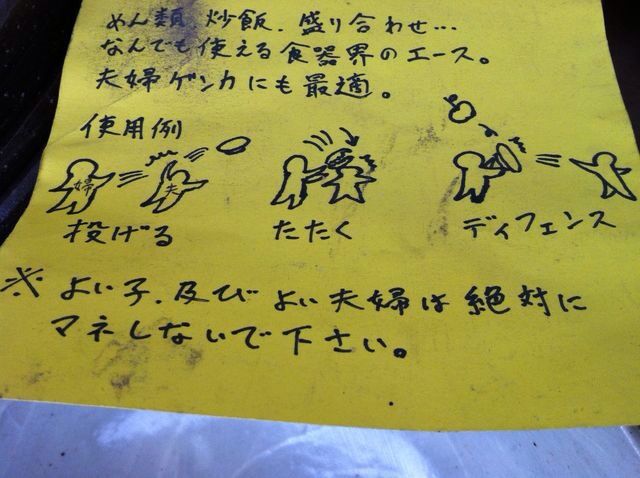 めん類 炒飯、盛り合わせ…
なんでも使える食器界のエース。
夫婦ゲンカにも最適。
使用例
婦 夫
投げる たたく ディフェンス
※よい子、及びよい夫婦は絶対に
マネしないで下さい。